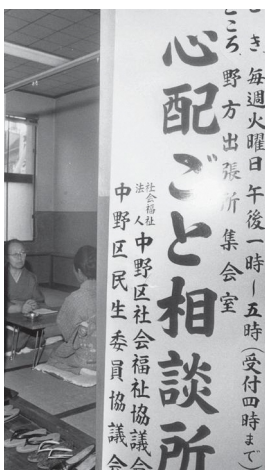 き 毎週火曜日午後一時～五時(受付四時まで)
ところ 野方出張所集会室
心配ごと相談所
社会福祉
法人
中野区社会福祉協議会
中野区民生委員協議会